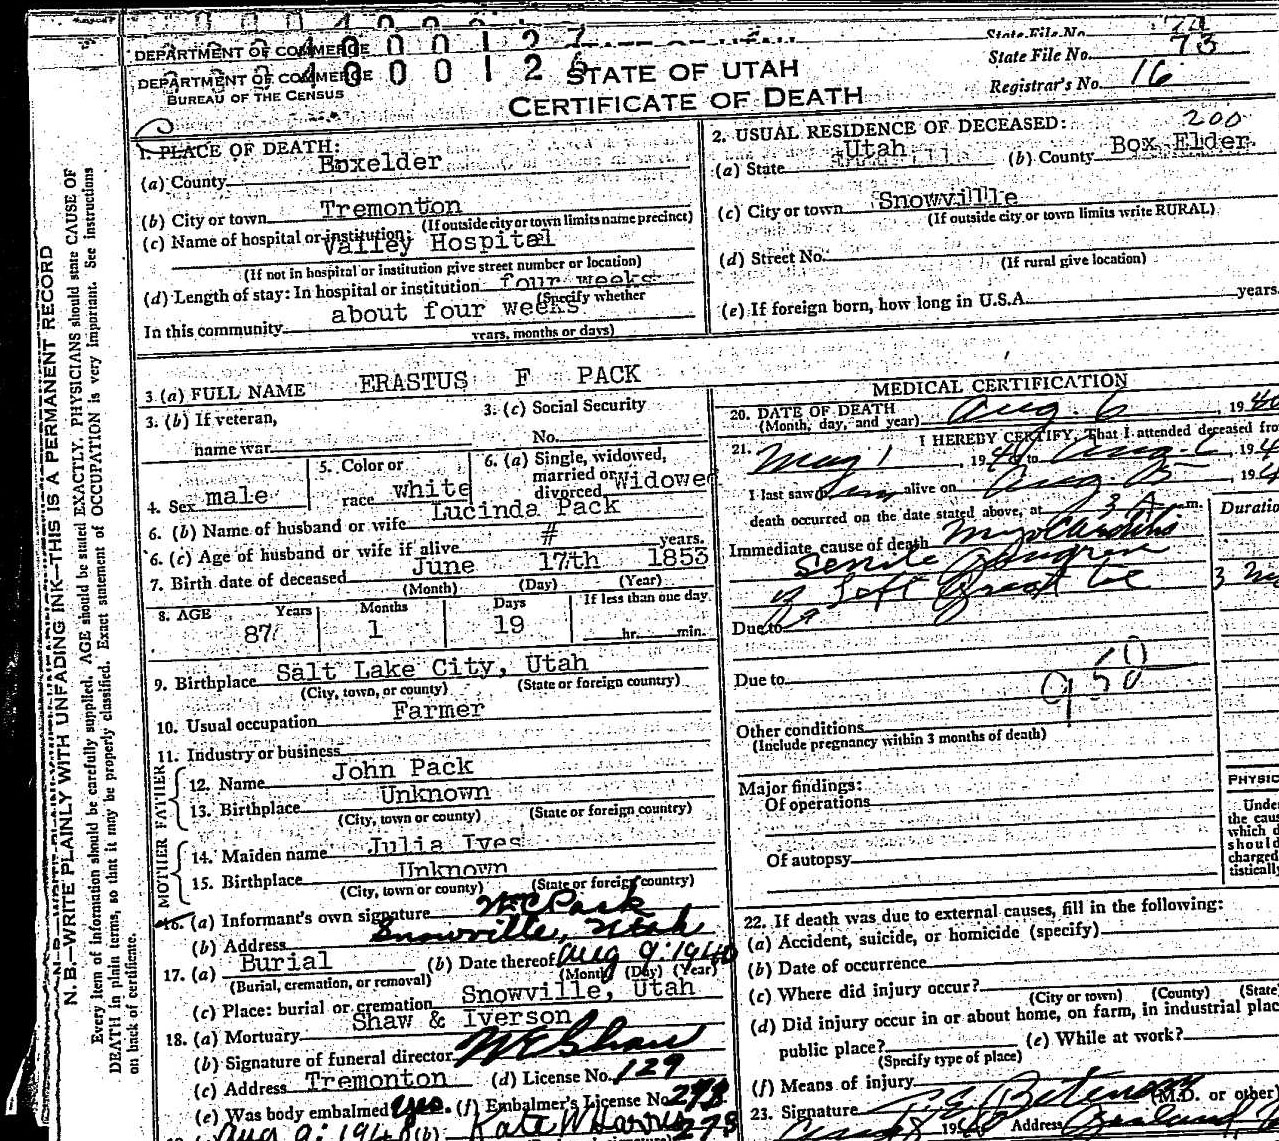 DEPARTMENT OF COMMERCE
DEPARTMENT OF COMMERCE
BUREAU OF THE CENSUS
STATE OF UTAH
CERTIFICATE OF DEATH
State File No.
State File No. 73
Registrar's No. 16
1. PLACE OF DEATH:
(a) County Boxelder
(b) City or town Tremonton
(If outside city or town limits name precinct)
(c) Name of hospital or institution: Valley Hospital
(If not in hospital or institution give street number or location)
(d) Length of stay: In hospital or institution four weeks
(Specify whether
In this community about four weeks
years, months or days)
2. USUAL RESIDENCE OF DECEASED: 200
(a) State Utah (b) County Box Elder
(c) City or town Snowville
(If outside city or town limits write RURAL)
(d) Street No.
(If rural give location)
(e) If foreign born, how long in U.S.A. years.
3 (a) FULL NAME ERASTUS F PACK
3. (b) If veteran,
name war
3. (c) Social Security
No.
4. Sex male
5. Color or
race white
6. (a) Single, widowed,
married or
divorced Widowed
6. (b) Name of husband or wife Lucinda Pack
6. (c) Age of husband or wife if alive # years.
7. Birth date of deceased June 17th 1853
(Month) (Day) (Year)
8. AGE Years Months Days If less than one day
87 1 19 hr. min.
9. Birthplace Salt Lake City, Utah
(City, town, or county) (State or foreign country)
10. Usual occupation Farmer
11. Industry or business
FATHER
12. Name John Pack
13. Birthplace Unknown
(City, town or county) (State or foreign country)
MOTHER
14. Maiden name Julia Ives
15. Birthplace Unknown
(City, town or county) (State or foreign country)
16. (a) Informant's own signature Pack
(b) Address Snowville, Utah
17. (a) Burial (b) Date thereof Aug 9: 1940
(Burial, cremation, or removal) (Month) (Day) (Year)
(c) Place: burial or cremation Snowville, Utah
18. (a) Mortuary Shaw & Iverson
(b) Signature of funeral director W E Shaw
(c) Address Tremonton (d) License No. 129
(e) Was body embalmed Yes. (f) Embalmer's License No.
Aug 9: 1940 (b) Kate W Harris
MEDICAL CERTIFICATION
20. DATE OF DEATH
(Month, day, and year) Aug. 6, 1940
21. I HEREBY CERTIFY, That I attended deceased fro
May 1, 1940 to Aug. 6, 194
I last saw him alive on Aug 5, 194
death occurred on the date stated above, at 3 A. m.
Duratio
Immediate cause of death Myocarditis
Senile Gangrene
of Left Great toe
3
Due to
Due to
950
Other conditions
(Include pregnancy within 3 months of death)
Major findings:
Of operations
Of autopsy
PHYSIC
Unde
the cau
which d
should
charged
tistically
22. If death was due to external causes, fill in the following:
(a) Accident, suicide, or homicide (specify)
(b) Date of occurrence
(c) Where did injury occur?
(City or town) (County) (State
(d) Did injury occur in or about home, on farm, in industrial plac
public place? (e) While at work?
(Specify type of place)
(f) Means of injury
23. Signature (M.D. or other
1940 Address Garland
N. B.—WRITE PLAINLY WITH UNFADING INK—THIS IS A PERMANENT RECORD
Every item of information should be carefully supplied. AGE should be stated EXACTLY. PHYSICIANS should state CAUSE OF
DEATH in plain terms, so that it may be properly classified. Exact statement of OCCUPATION is very important. See instructions
on back of certificate.